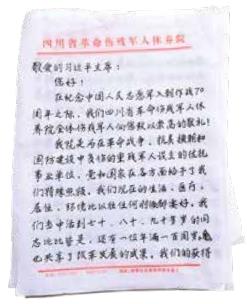 四川省革命伤残军人休养院
敬爱的习近平主席：
您好！
在纪念中国人民志愿军入朝作战70
周年之际，我们四川省革命伤残军人休
养院全体伤残军人向您致以崇高的敬礼！
我院是为在革命战争、抗美援朝和
国防建设中负伤的重残军人设立的优抚
事业单位，党和国家在各方面给予了我
们特殊照顾，我们现在的生活、医疗、
居住、环境比以往任何时候都要好。我
们当中活到七十、八十、九十多岁的同
志比比皆是，还有一位年满一百周岁，
也共享了改革发展的成果，我们的获得